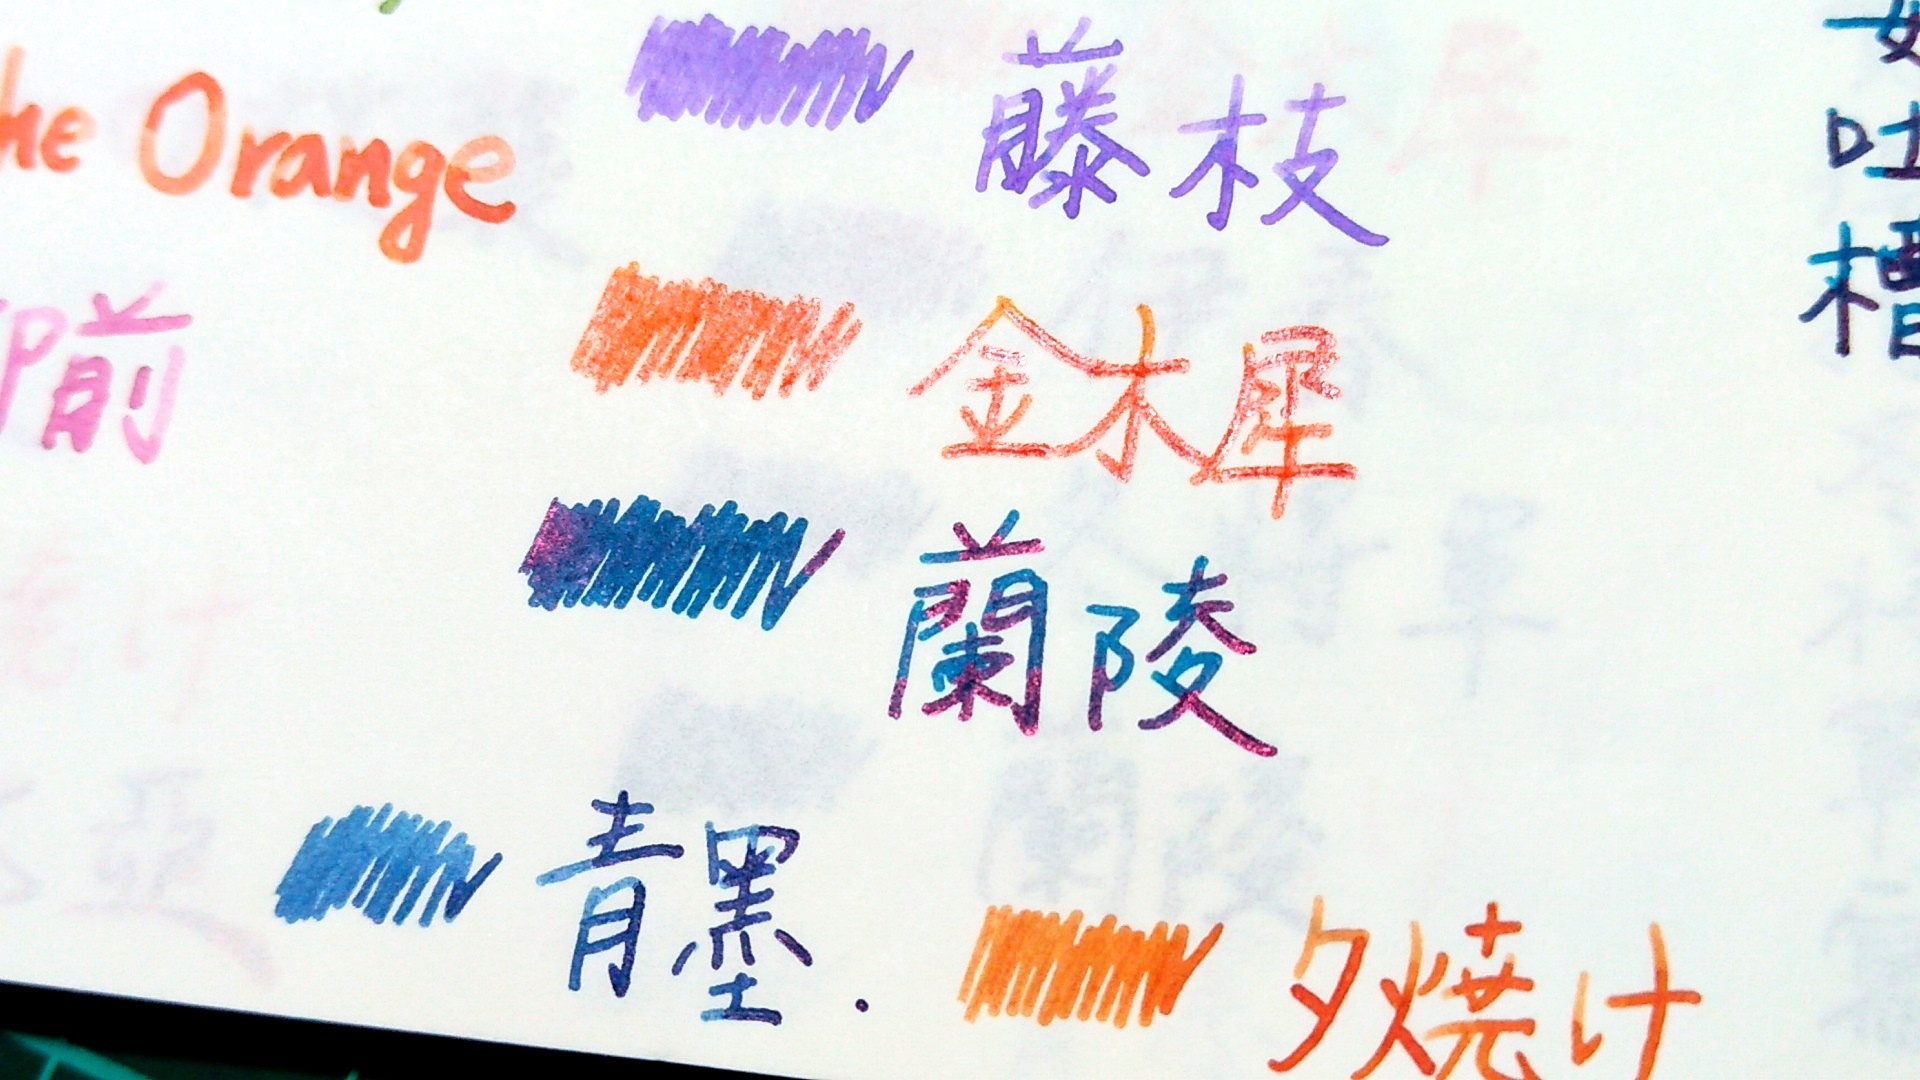 he Orange
前
藤枝
金木犀
蘭陵
青墨.
夕焼け
吐
槽